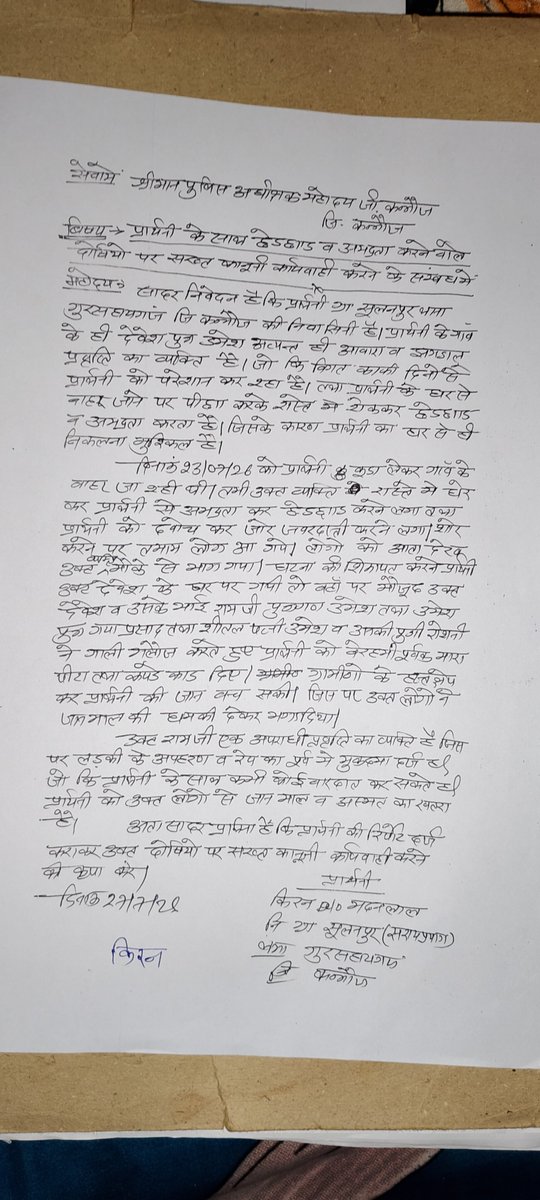 सेवामें श्रीमान पुलिस अधीक्षक महोदय जी, कन्नौज
जि- कन्नौज
विषय → प्रार्थिनी के साथ छेडछाड व अभद्रता करने वाले
दोषियो पर सख्त कानूनी कार्यवाही करने के संबंध में
महोदय,
सादर निवेदन है कि प्रार्थिनी ग्रा सुलनपुर थाना
गुरसहायगंज जि कन्नौज की निवासिनी है। प्रार्थिनी के गाँव
के ही देवेश पुत्र उमेश अत्यन्त ही आवारा व झगडालू
प्रवृत्ति का व्यक्ति है। जो कि विगत काफी दिनों से
प्रार्थिनी को परेशान कर रहा है। तथा प्रार्थिनी के घर से
बाहर जाने पर पीछा करके रास्ते में रोककर छेडछाड
व अभद्रता करता है। जिसके कारण प्रार्थिनी का घर से ही
निकलना मुश्किल है।
दिनांक 23/07/26 को प्रार्थिनी कूडा लेकर गाँव के
बाहर जा रही थी। तभी उक्त व्यक्ति ने रास्ते में घेर
कर प्रार्थिनी से अभद्रता कर छेडछाड करने लगा तथा
प्रार्थिनी को दबोच कर जोर जबरदस्ती करने लगा। शोर
करने पर तमाम लोग आ गये। लोगो को आता देख
उक्त व्यक्ति मौके से भाग गया। घटना की शिकायत करने प्रार्थिनी
उक्त देवेश के घर पर गयी तो वहाँ पर मौजूद उक्त
देवेश व उसके भाई रामजी पुत्रगण उमेश तथा उमेश
पुत्र गया प्रसाद तथा शीतल पत्नी उमेश व उसकी पुत्री रोशनी
ने गाली गलौज करते हुए प्रार्थिनी को बेरहमी पूर्वक मारा
पीटा तथा कपडे फाड दिए। ग्रामीणों के हस्तक्षेप
कर प्रार्थिनी की जान बच सकी। जिस पर उक्त लोगों ने
जानमाल की धमकी देकर भगा दिया।
उक्त रामजी एक अपराधी प्रवृत्ति का व्यक्ति है जिस
पर लडकी के अपहरण व रेप का पूर्व में मुकदमा दर्ज है।
जो कि प्रार्थिनी के साथ कभी कोई वारदात कर सकते है।
प्रार्थिनी को उक्त लोगो से जान माल व अस्मत का खतरा
है।
अतः सादर प्रार्थना है कि प्रार्थिनी की रिपोर्ट दर्ज
कराकर उक्त दोषियो पर सख्त कानूनी कार्यवाही करने
की कृपा करे।
प्रार्थिनी
दिनांक 27/7/26
किरन D/O मदनलाल
नि ग्रा सुलनपुर (सरायप्रयाग)
थाना गुरसहायगंज
जि कन्नौज
किरन